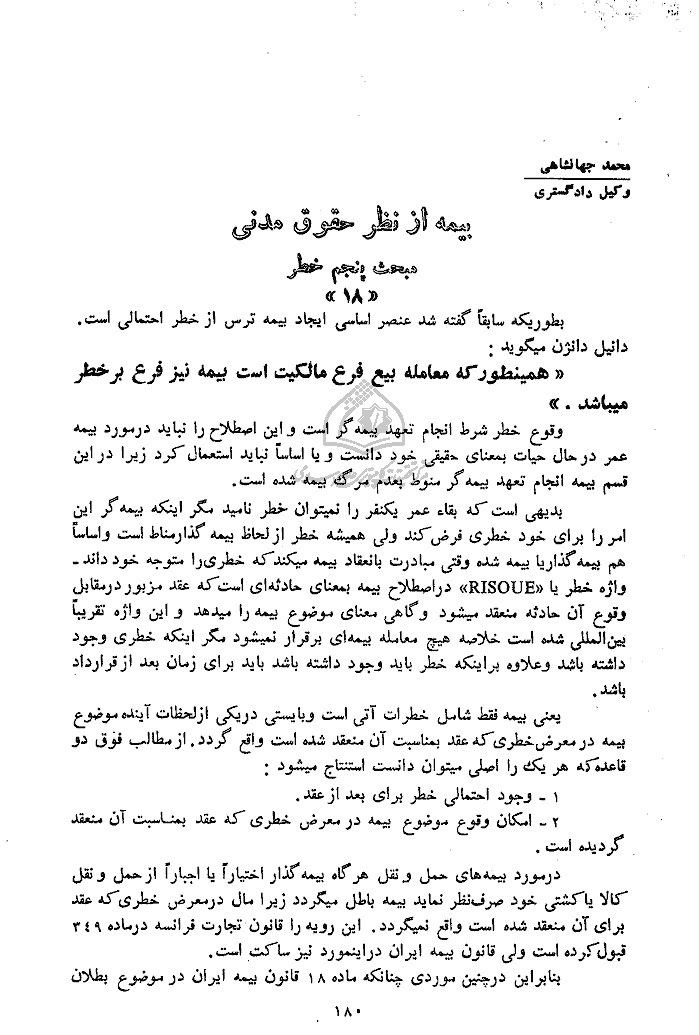 محمد جهانشاهی
وکیل دادگستری
بیمه از نظر حقوق مدنی
مبحث پنجم خطر
« ۱۸ »
بطوریکه سابقاً گفته شد عنصر اساسی ایجاد بیمه ترس از خطر احتمالی است.
دانیل دانژن میگوید :
« همینطور که معامله بیع فرع مالکیت است بیمه نیز فرع بر خطر
میباشد . »
وقوع خطر شرط انجام تعهد بیمه‌گر است و این اصطلاح را نباید درمورد بیمه
عمر در حال حیات بمعنای حقیقی خود دانست و یا اساساً نباید استعمال کرد زیرا در این
قسم بیمه انجام تعهد بیمه‌گر منوط بعدم مرگ بیمه شده است.
بدیهی است که بقاء عمر یکنفر را نمیتوان خطر نامید مگر اینکه بیمه‌گر این
امر را برای خود خطری فرض کند ولی همیشه خطر از لحاظ بیمه گذار مناط است و اساساً
هم بیمه‌گذار یا بیمه شده وقتی مبادرت بانعقاد بیمه میکند که خطری را متوجه خود داند ـ
واژه خطر یا «RISOUE» در اصطلاح بیمه بمعنای حادثه‌ای است که عقد مزبور در مقابل
وقوع آن حادثه منعقد میشود و گاهی معنای موضوع بیمه را میدهد و این واژه تقریباً
بین‌المللی شده است خلاصه هیچ معامله بیمه‌ای برقرار نمیشود مگر اینکه خطری وجود
داشته باشد و علاوه بر اینکه خطر باید وجود داشته باشد باید برای زمان بعد از قرارداد
باشد.
یعنی بیمه فقط شامل خطرات آتی است و بایستی در یکی از لحظات آینده موضوع
بیمه در معرض خطری که عقد بمناسبت آن منعقد شده است واقع گردد. از مطالب فوق دو
قاعده که هر یک را اصلی میتوان دانست استنتاج میشود :
۱ ـ وجود احتمالی خطر برای بعد از عقد.
۲ ـ امکان وقوع موضوع بیمه در معرض خطری که عقد بمناسبت آن منعقد
گردیده است .
درمورد بیمه‌های حمل و نقل هرگاه بیمه‌گذار اختیاراً یا اجباراً از حمل و نقل
کالا یا کشتی خود صرف‌نظر نماید بیمه باطل میگردد زیرا مال درمعرض خطری که عقد
برای آن منعقد شده است واقع نمیگردد. این رویه را قانون تجارت فرانسه درماده ۳۴۹
قبول کرده است ولی قانون بیمه ایران دراینمورد نیز ساکت است.
بنابراین درچنین موردی چنانکه ماده ۱۸ قانون بیمه ایران در موضوع بطلان
۱۸۰